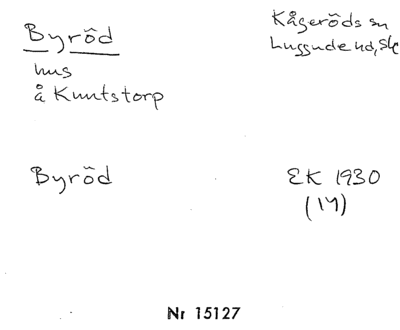 Byröd
Kågeröds sn
Luggude hd, Sk
hus
å Knutstorp
Byröd
EK 1930
(14)
Nr 15127